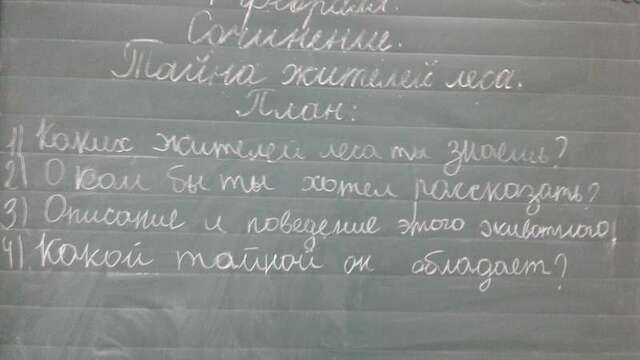 февраля.
Сочинение.
Тайна жителей леса.
План:
1) Каких жителей леса ты знаешь?
2) О ком бы ты хотел рассказать?
3) Описание и поведение этого животного.
4) Какой тайной он обладает?